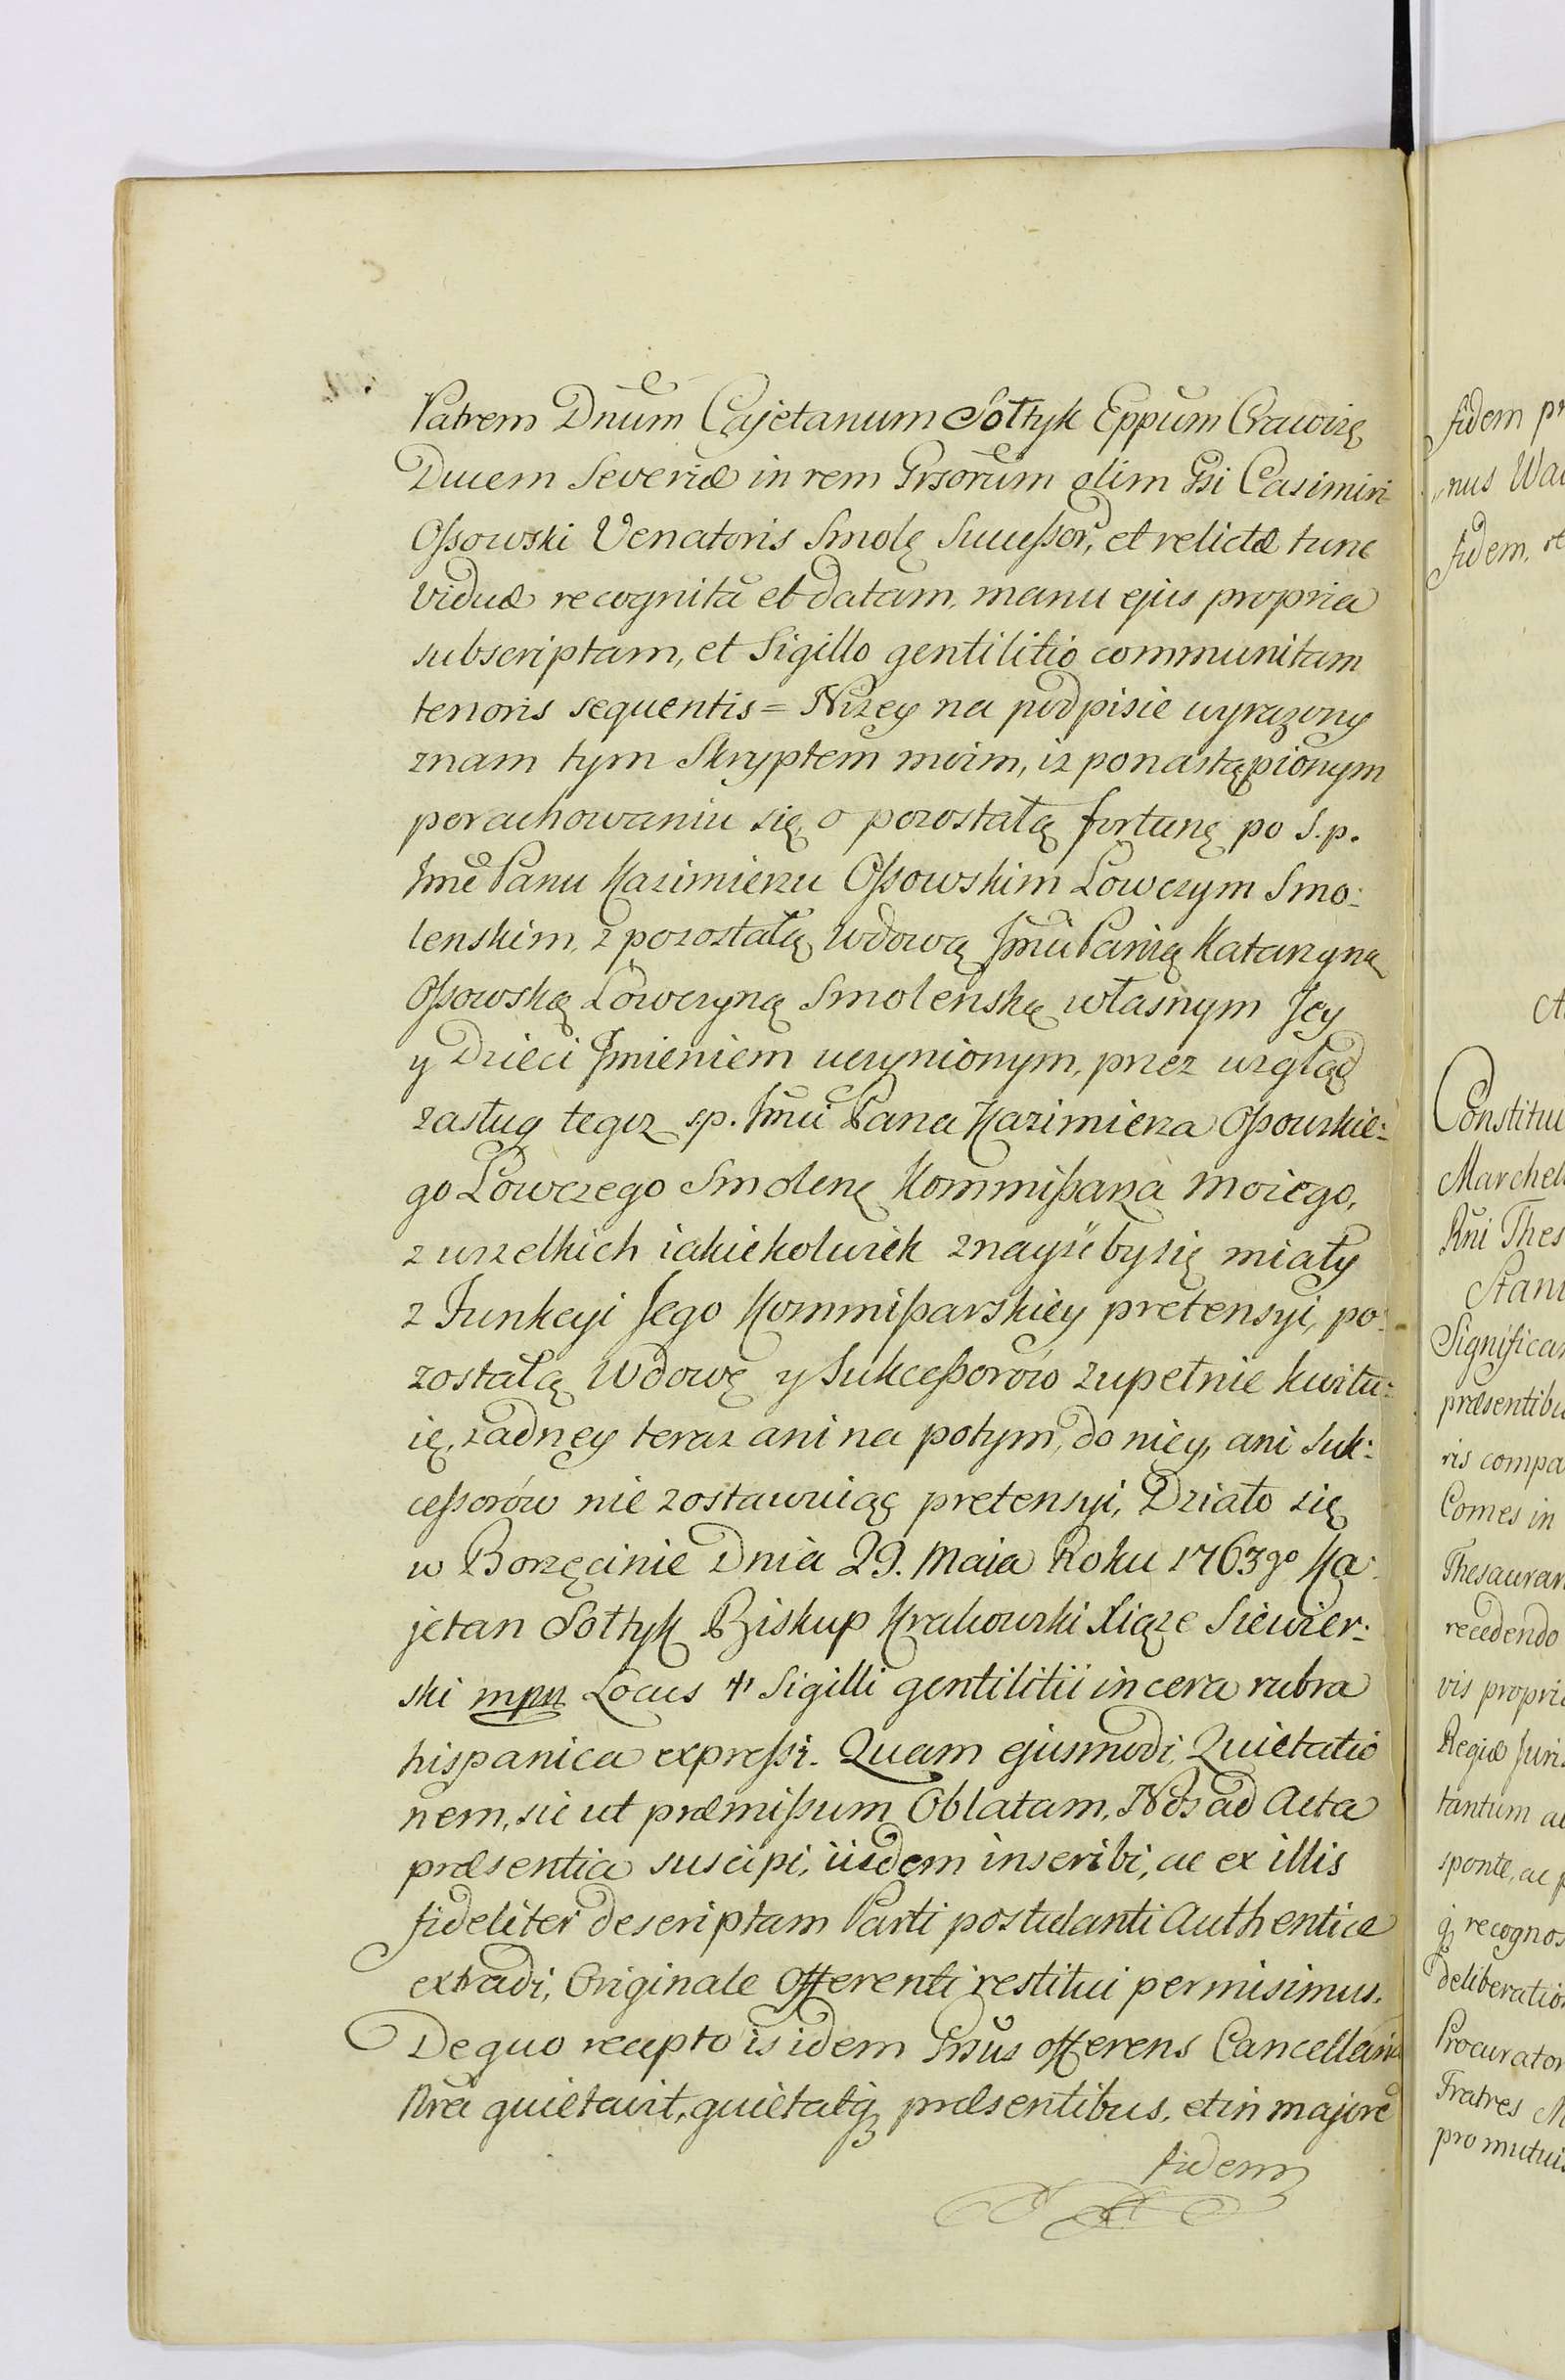 Patrem Dnum Cajetanum Sołtyk Eppum Cracovię
Ducem Severiæ in rem Grsorum olim Gsi Casimiri
Ossowski Venatoris Smolę Successor, et relictæ tunc
viduæ recognitā et datam, manu ejus propria
subscriptam, et Sigillo gentilitio communitam
tenoris sequentis = Niżey na podpisie wyrażony
znam tym Skryptem moim, iż po nastąpionym
porachowaniu się o pozostałą fortunę po S. p.
Jmć Panu Kazimierzu Ossowskim Łowczym Smo:
lenskim, z pozostałą Wdową Jmći Panią Katarzyną
Ossowską Łowczyną Smolenską własnym Jey
y Dzieci Jmieniem uczynionym, przez wzgląd
zasług tegoz s.p. Jmći Pana Kazimierza Ossowskie:
go Łowczego Smolenę Kommissarza moiego,
z wszelkich iakiekolwiek znayść by się miały
z Funkcyi Jego Kommissarskiey pretensyi, po:
zostałą Wdowę y Sukcessorów zupełnie kwitu:
ię, zadney teraz ani na potym, do niey, ani Suk:
cessorów nie zostawuiąc pretensyi, Działo się
w Borzęcinie Dnia 29. Maia Roku 1763go Ka:
jetan Sołtyk Biskup Krakowski Xiąże Siewier:
ski mpp Locus ✝ Sigilli gentilitii in cera rubra
hispanica expressi. Quam ejusmodi Quietatio
nem, sic ut præmissum Oblatam, Nos ad Acta
præsentia suscipi, iisdem inscribi, ac ex illis
fideliter descriptam Parti postulanti Authentice
extradi, Originale Offerenti restitui permisimus.
De quo recepto is idem Grsus offerens Cancellariā
Nrā quietavit, quietatq præsentibus, et in majorē
fidem
fidem
nus
fidem,
Constitu
Marchel
Rni Thes
Stani
Significa
præsentibu
ris compa
Comes in
Thesaurar
recedendo
vis propri
Regiæ Juri
tantum ac
sponte, ac
q recognos
deliberatio
Procurator
Fratres
pro mutui